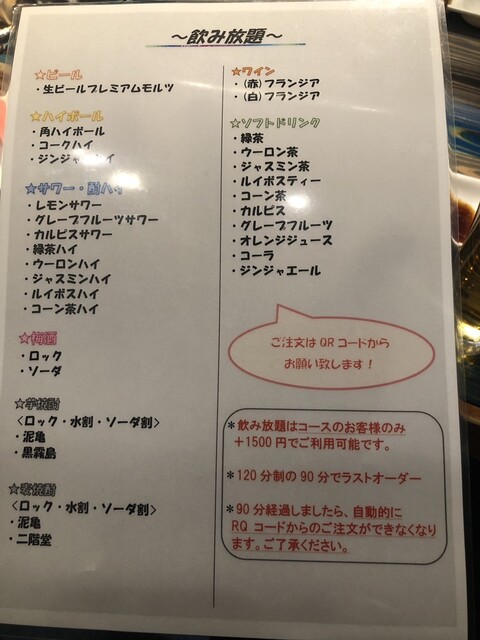 ～飲み放題～
☆ビール
・生ビールプレミアムモルツ
☆ハイボール
・角ハイボール
・コークハイ
・ジンジャーハイ
☆サワー・酎ハイ
・レモンサワー
・グレープフルーツサワー
・カルピスサワー
・緑茶ハイ
・ウーロンハイ
・ジャスミンハイ
・ルイボスハイ
・コーン茶ハイ
☆梅酒
・ロック
・ソーダ
☆芋焼酎
＜ロック・水割・ソーダ割＞
・泥亀
・黒霧島
☆麦焼酎
＜ロック・水割・ソーダ割＞
・泥亀
・二階堂
☆ワイン
・(赤)フランジア
・(白)フランジア
☆ソフトドリンク
・緑茶
・ウーロン茶
・ジャスミン茶
・ルイボスティー
・コーン茶
・カルピス
・グレープフルーツ
・オレンジジュース
・コーラ
・ジンジャエール
ご注文はQRコードから
お願い致します！
＊飲み放題はコースのお客様のみ
＋1500円でご利用可能です。
＊120分制の90分でラストオーダー
＊90分経過しましたら、自動的に
RQ コードからのご注文ができなくなり
ます。ご了承ください。